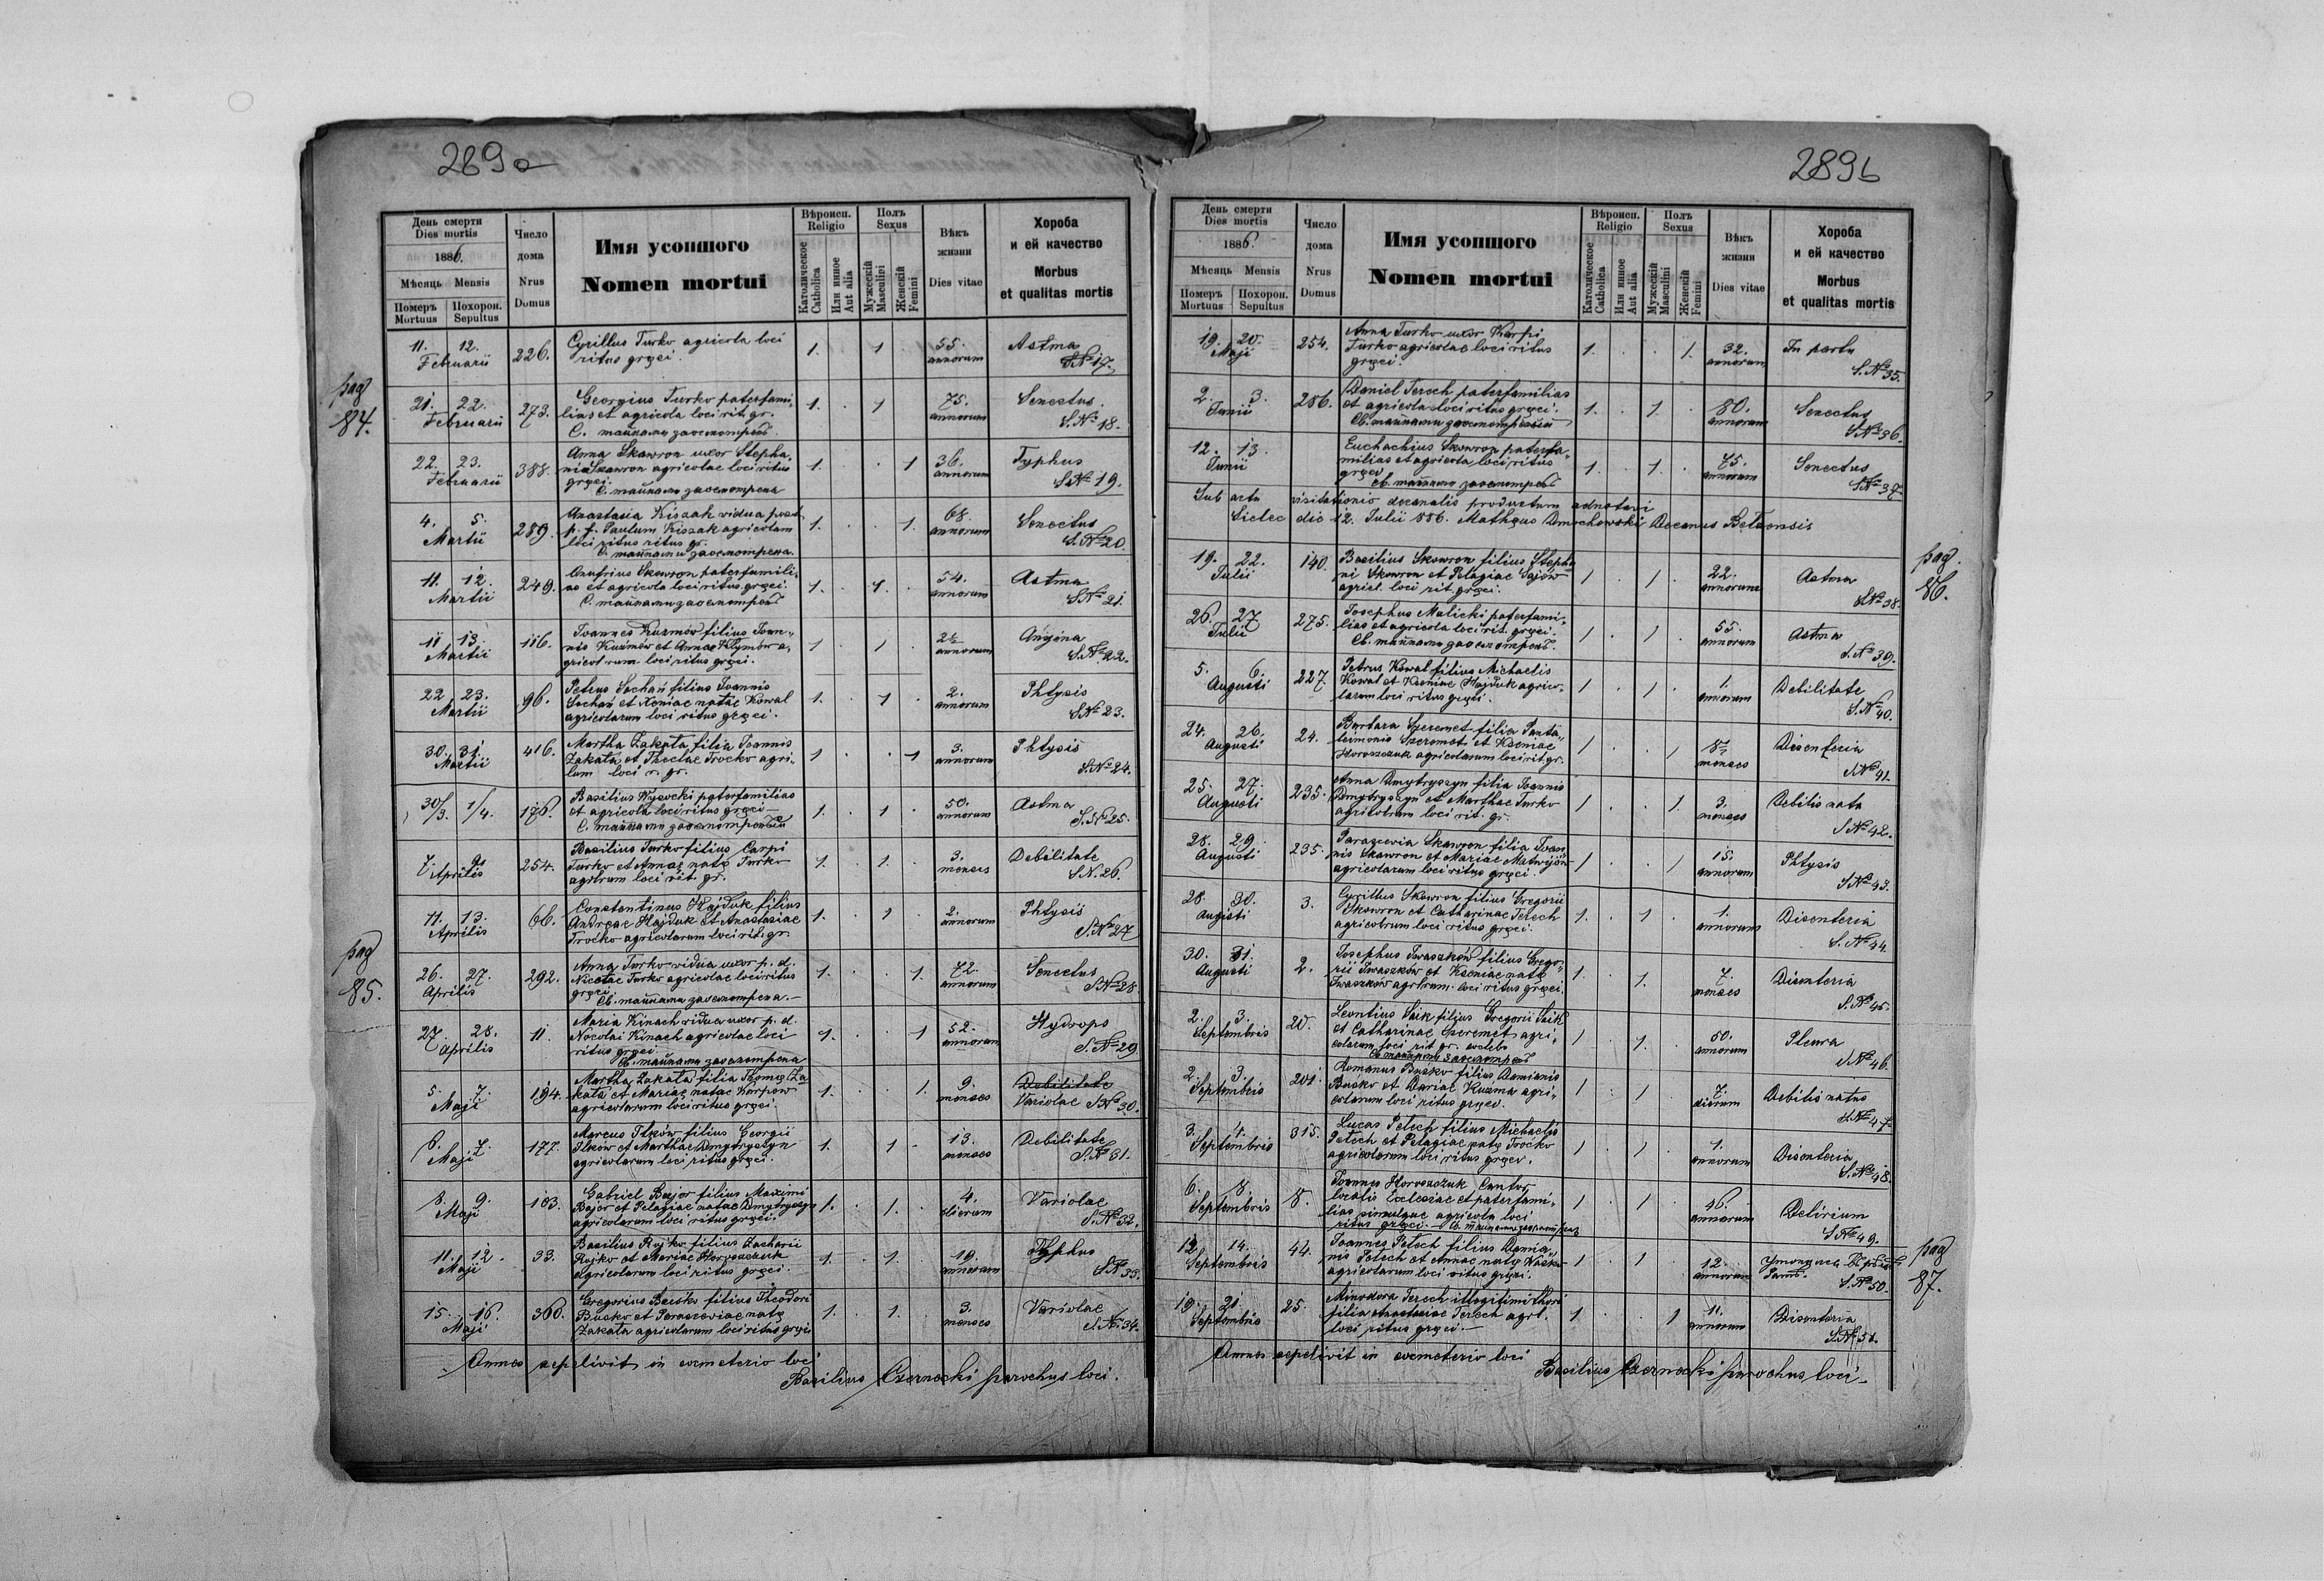 289a
День смерти
Dies mortis
1886.
Мѣсяць Mensis
Померъ Mortuus
Похорон. Sepultus
Число дома
Nrus Domus
Имя усопшого
Nomen mortui
Вѣроисп. Religio
Католическое Catholica
Или инное Aut alia
Полъ Sexus
Мужескій Masculini
Женскій Femini
Вѣкъ жизни
Dies vitae
Хороба и ей качество
Morbus et qualitas mortis
11. 12. Februarii 226. Cyrillus Turko agricola loci
ritus gręci. 1. 1 55. annorum Astma S.№ 17.
pag 84.
21. 22. Februarii 273. Georgius Turko paterfami-
lias et agricola loci rit. gr. 1. 1 75. annorum Senectus. S.№ 18.
С. тайнами заосмотренъ.
22. 23. Februarii 388. Anna Skawron uxor Stepha-
ni Skawron agricolae loci ritus
gręci. 1. 1 36. annorum Typhus S.№ 19.
С. тайнами заосмотрена
4. 5. Martii 289. Anastasia Kiszak vidua post
p. f. Paulum Kiszak agricolam
loci ritus ritus gr. 1. 1. 68. annorum Senectus S.№ 20.
С. тайнами заосмотрена.
11. 12. Martii 249. Onufrius Skawron paterfamili-
as et agricola loci ritus gręci. 1. 1. 54. annorum Astma S.№ 21.
С. тайнами заосмотренъ
11 13. Martii 116. Joannes Kuzmów filius Joan-
nis Kuźmów et Annae Klymów a-
gricol rum loci ritus gręci. 1 1 annorum Angina S.№ 22.
22 23. Martii 96. Petrus Sochań filius Joannis
Sochań et Xeniae natae Kowal
agricolarum loci ritus gręci. 1. 1 2. annorum Phtysis S.№ 23.
30. 31. Martii 416. Martha Zakała filia Joannis
Zakała et Theclae Troćko agri-
lum loci r. gr. 1 1 3. annorum Phtysis S.№ 24.
30/3. 1/4. 176. Basilius Wysocki paterfamilias
et agricola loci ritus gręci 1. 1 50. annorum Astma S.№ 25.
С. тайнами заосмотренный
7. 9. Aprilis 254. Basilius Turko filius Carpi
Turko et Annae natę Turko
agrlrum loci rit. gr. 1. 1. 3. menses Debilitate S.N. 26.
11. 13. Aprilis 66. Constantinus Hajduk filius
Andreae Hajduk et Anastasiae
Troćko agricolarum loci rit. gr. 1. 1 2. annorum Phtysis S.№ 27
pag 85.
26. 27. Aprilis 292. Anna Turko vidua uxor p. d.
Nicetae Turko agricolae loci ritus
gręci. 1. 1. 72. annorum Senectus S.№ 28
Св. тайнами заосмотрена.
27. 28. Aprilis 11. Maria Kinach vidua uxor p. d.
Nocolai Kinach agricolae loci
ritus gręci 1. 1 52. annorum Hydrops S.№ 29
Св. тайнами заосмотрена
5 7. Maji 194. Martha Zakała filia Thomę Za
kała et Mariae natae Karpow
agricolarum loci ritus gręci. 1. 1. 9. menses Debilitate
Variolae S.№ 30.
6. 7. Maji 177. Marcus Ilków filius Georgii
Ilków et Marthae Dmytryszyn
agricolarum loci ritus gręci. 1. 1 13. menses Debilitate S.№ 31.
8. 9. Maji 183. Gabriel Bajor filius Maximi
Bajor et Pelagiae natae Dmytryszyn
agricolarum loci ritus gręci. 1. 1. 4. dierum Variolae S.№ 32.
11. 12. Maji 33. Basilius Rojko filius Zacharii
Rojko et Mariae Horoszczuk
agricolarum loci ritus gręci. 1. 1. 19. annorum Typhus S.№ 33.
15. 16. Maji 366. Gregorius Busko filius Theodori
Busko et Parasceviae natę
Zakała agricolarum loci ritus gręci 1. 1. 3. menses Variolae S.№ 34.
Omnes sepelivit in coemeterio loci
Basilius Czernecki parochus loci.
289b
День смерти
Dies mortis
1886.
Мѣсяць Mensis
Померъ Mortuus
Похорон. Sepultus
Число дома
Nrus Domus
Имя усопшого
Nomen mortui
Вѣроисп. Religio
Католическое Catholica
Или инное Aut alia
Полъ Sexus
Мужескій Masculini
Женскій Femini
Вѣкъ жизни
Dies vitae
Хороба и ей качество
Morbus et qualitas mortis
19. 20. Maji 254. Anna Turko uxor Karpi
Turko agricolae loci ritus
gręci. 1. 1. 32. annorum In partu S.№ 35.
2. 3. Junii 286. Daniel Terech paterfamilias
et agricola loci ritus gręci. 1. 1. 80. annorum Senectus S.№ 36.
Св. тайнами заосмотреный
12. 13. Junii Euchachius Skawron paterfa-
milias et agricola loci ritus
gręci 1. 1. 75. annorum Senectus S.№ 37.
Св. тайнами заосмотренъ
Sub actu visitationis decanalis productum adnotavi
Sielec die 12. Julii 886. Mathęus Dmochowski Decanus Bełzensis
19. 22. Julii 140. Basilius Skawron filius Stepha
ni Skawron et Pelagiae Sajów
agricl. loci rit. gręci. 1 1. 22. annorum Astma S.№ 38.
pag. 86.
26. 27 Julii 275. Josephus Malicki paterfami-
lias et agricola loci rit. gręci. 1 1 55. annorum Astma S.№ 39.
Св. тайнами заосмотренъ.
5. 6. Augusti 227. Petrus Kowal filius Michaelis
Kowal et Kseniae Hajduk agrico-
larum loci ritus gręci. 1 1 1. annorum Debilitate S.№ 40.
24. 26. Augusti 24. Barbara Szeremet filia Panta-
leimonis Szeremet et Kseniae
Horoszczuk agricolarum loci rit. gr. 1 1 menses Disenferia S.№ 41.
25. 27. Augusti 235. Anna Dmytryszyn filia Joannis
Dmytryszyn et Marthae Turko
agricolrum loci rit. gr. 1 1. 3. menses Debilis nata S.№ 42.
28. 29. Augusti 235. Parascevia Skawron filia Joan
nis Skawron et Mariae Matwijów
agricolarum loci ritus gręci. 1 1 15. annorum Phtysis S.№ 43.
28. 30. Augusti 3. Cyrillus Skawron filius Gregorii
Skawron et Catharinae Terech
agricolrum loci ritus gręci. 1. 1 1. annorum Disenteria S.№ 44.
30. 31. Augusti 2. Josephus Iwaszków filius Grego-
rii Iwaszków et Kseniae natę
Iwaszków agrlrum loci ritus gręci. 1. 1. 7. menses Disenteria S.№ 45.
2. 3. Septembris 20. Leontius Saik filius Gregorii Saik
et Catharinae Szeremet agri-
colarum loci rit. gr. coelebs 1 1. 50. annorum Pleura S.№ 46.
Св. тайнами заосмотренъ
2. 3. Septembris 201. Romanus Busko filius Damianis
Busko et Dariae Kuźma agri-
colarum loci ritus gręci. 1 1 7. dierum Debilis natus S.№ 47.
3. 4. Septembris 315. Lucas Petech filius Michaelis
Petech et Pelagiae natę Troćko
agricolarum loci ritus gręci. 1 1 1. annorum Disenteria S.№ 48.
6. 8. Septembris 8. Joannes Horoszczuk Cantor
localis Ecclesiae et paterfami-
lias simulque agricola loci
ritus gręci. Св. тайнами 1 1 46. annorum Delirium S.№ 49.
12 14. Septembris 44. Joannes Petech filius Damia-
nis Petech et Annae natę Wasko
agricolarum loci ritus gręci. 1 1 12. annorum S.№ 50.
pag 87.
19. 21. Septembris 25. Minodora Terech illegitimi thori
filia Anastasiae Terech agrl.
loci ritus gręci. 1 1 11. annorum Disenteria S.№ 51.
Omnes sepelivit in coemeterio loci
Basilius Czernecki parochus loci.